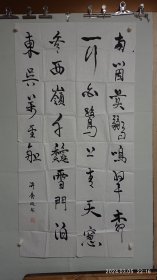 兩箇黃鸝鳴翠柳
一行白鷺上青天窗
含西嶺千秋雪門泊
東吳萬里船